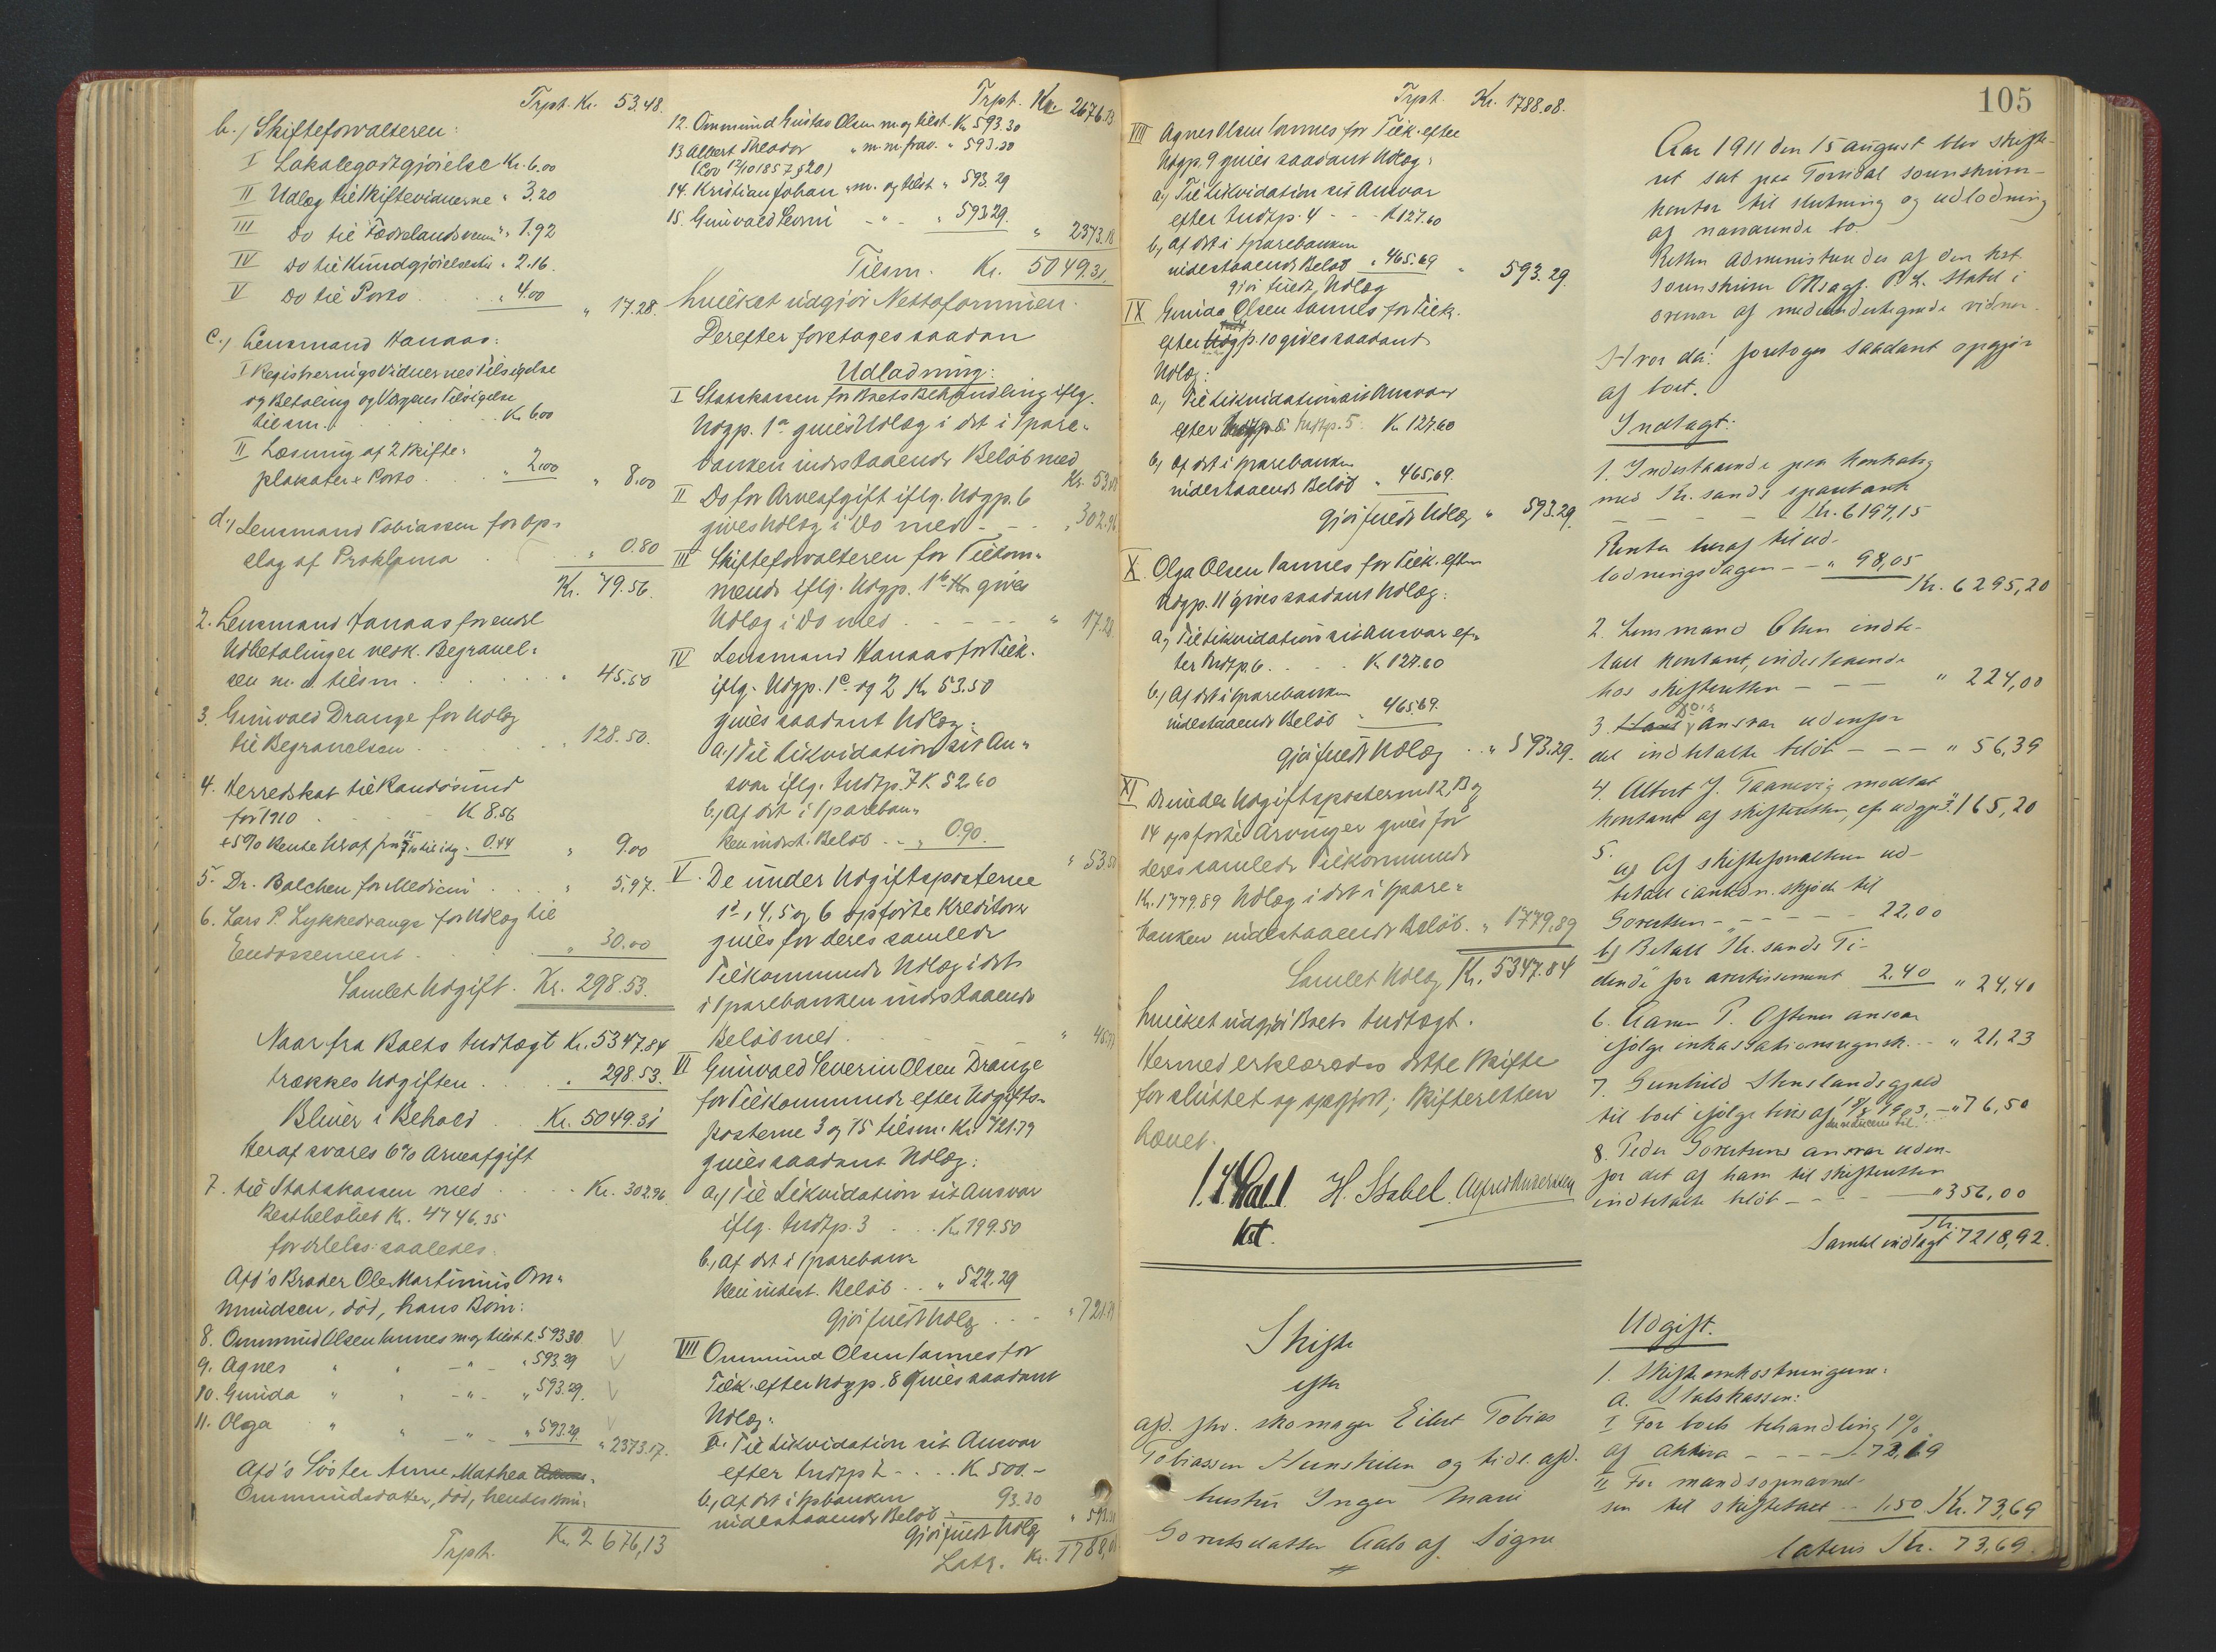 Trpt. Kr. 53.48.
b.) Skifteforvalteren:
I Lokalegodtgjörelse Kr. 6.00
II Udlæg til Skiftevidnerne " 3.20
III Do til "Fædrelandsvenn" " 1.92
IV Do til Kundgjörelsestid. " 2.16.
V Do til Porto . . . " 4.00 " 17.28.
c.) Lensmand Hanaas:
I Registreringsvidnernes Tilsigelse
og Betaling og Vergens Tilsigelse
tilsm. . . . . Kr. 6.00
II Læsning af 2 Skifte-
plakater + Porto . . " 2.00 " 8.00
d.) Lensmand Tobiassen for Op-
slag af Proklama . . " 0.80
Kr. 79.56.
2. Lensmand Hanaas for endel
Udbetalinger vedk. Begravel-
sen m. d. tilsm . . . . " 45.50
3. Gunvald Drange for Udlæg
til Begravelsen . . . . " 128.50.
4. Herredskat til Randösund
for 1910 . . . K. 8.56
+ 5% Rente heraf fra 15/7 10 til idg. " 0.44 " 9.00
5. Dr. Balchen for Medicin . . . " 5.97.
6. Lars P. Lykkedrange for Udlæg til
Endossement . . . . " 30.00
Samlet Udgift . Kr. 298.53.
Naar fra Boets Indtægt Kr. 5347.84
trækkes Udgiften . . . " 298.53.
Bliver i Behold . . Kr. 5049.31
Heraf svares 6% Arveafgift
7. til Statskassen med . . . . Kr. 302.96
Restbelöbet Kr. 4746.35
fordeles saaledes:
Afd's Broder Ole Martinius Om-
mundsen, död, hans Börn:
8. Ommund Olsen Tannes m. og tilst. K. 593.30
9. Agnes " " - " - " 593.29
10. Gunda " " - " - " 593.29.
11. Olga " " - " - " 593.29. " 2373.17.
Afd's Söster Anne Mathea
Ommundsdatter, död, hendes Börn:
Trpt. Kr. 2 676,13
Trpt. Kr. 2676.13
12. Ommund Gustav Olsen m. og tilst. Kr. 593.30
13 Albert Theodor " m. m. frav. " 593.30
(Lov 12/10 1857 § 20)
14. Kristian Johan " m. og tilst " 593.29
15. Gunvald Severin - " - " 593.29. " 2373.18
Tilsm. Kr. 5049.31.
hvilket udgjör Nettoformuen.
Derefter foretages saadan
Udlodning:
I Statskassen for Boets Behandling iflg.
Udgp. 1a gives Udlæg i det i Spare-
banken indestaaende Belöb med
Kr. 53.48
II Do for Arveafgift iflg. Udgp. 6
gives Udlæg i Do med - - - " 302.96
III Skifteforvalteren for Tilkom-
mende iflg. Udgp. 1b gives
Udlæg i Do med . - - - - " 17.28.
IV Lensmand Hanaas for Tilk.
iflg. Udgp. 1c. og 2 Kr 53.50
gives saadant Udlæg:
a.) Til Likvidation sit An-
svar iflg. Indtp. 7 K. 52.60
b.) Af det i Spareban-
ken indest. Belöb . . " 0.90. " 53.50
V. De under Udgiftsposterne
1d, 4, 5 og 6 opförte Kreditorer
gives for deres samlede
Tilkommende Udlæg i det
i Sparebanken indestaaende
Belöb med . . . " 45.77
VI Gunvald Severin Olsen Drange
for Tilkommende efter Udgifts-
posterne 3 og 15 tilsm. Kr. 721.79
gives saadant Udlæg:
a.) Til Likvidation sit Ansvar
iflg. Indtp. 3 . . . K. 199.50
b.) Af det i Spareban-
ken indest. Belöb . . " 522.29
gjör fuldt Udlæg . . . " 721.79
VII Ommund Olsen Tannes for
Tilk. efter Udgp. 8 gives saadant
Udlæg:
a. Til Likvidation sit Ansvar
efter Indtp 2 - . . . K. 500.-
b.) Af det i Spbanken
indestaaende Belöb " 93.30
gjör fuldt Udlæg " 593.30
Latr. Kr. 1788,08
Trpt. Kr. 1788.08.
VIII Agnes Olsen Tannes for Tilk. efter
Udgp. 9 gives saadant Udlæg:
a.) Til Likvidation sit Ansvar
efter Indtp. 4 - - - K. 127.60
b.) Af det i Sparebanken
indestaaende Belöb " 465.69
gjör fuldt Udlæg " 593.29.
IX Gunda Olsen Tannes for Tilk.
efter Udgp. 10 gives saadant
Udlæg:
a.) Til Likvidation sit Ansvar
efter Indtp. 5 K. 127.60
b.) Af det i Sparebanken
indestaaende Belöb " 465.69.
gjör fuldt Udlæg " 593.29.
X. Olga Olsen Tannes for Tilk. efter
Udgp. 11 gives saadant Udlæg:
a.) Til Likvidation sit Ansvar ef-
ter Indtp. 6 . . . . K. 127.60
b.) Af det i Sparebanken
indestaaende Belöb " 465.69.
gjör fuldt Udlæg . . " 593.29.
XI De under Udgiftsposterne 12, 13 og
14 opförte Arvinger gives for
deres samlede Tilkommende
Kr. 1779.89 Udlæg i det i Spare-
banken indestaaende Belöb. " 1779.89
Samlet Udlæg Kr. 5347.84
hvilket udgjör Boets Indtægt.
Hermed erklæredes dette Skifte
for sluttet og opgjort; Skifteretten
hævet.
H. Stabel. Alfred Andersen
kst.
Skifte
efter
afd. fhv. skomager Eilert Tobias
Tobiassen Hunskilen og tidl. afd.
hustru Inger Marie
Gorrutsdatter Aalo af Søgne
105
Aar 1911 den 15 august blev skifte-
ret sat paa Torridal sorenskriver-
kontor til slutning og udlodning
af nærværende bo
Retten administreredes af den kst.
sorenskriver Ovrsagf. P. L. Stabel i
overvær af medundertegnede vidner.
Hvor da! foretoges saadant opgjör
af boet.
Indtægt:
1. Indestaaende paa kontrabog
med Kr.sands sparebank
- - - - - Kr. 6197,15
Renter heraf til ud-
lodningsdagen - - " 98,05
Kr. 6295,20
2. Lensmand Olsen indbe-
talt kontant, indestaaende
hos skifteretten - - - " 224,00
3. Ansvar udenfor
det indbetalte belöb - - - " 56,39
4. Albert J. Taanevig modtat
kontant af skifteretten, cfr. udgp. 3. " 165,20
5.
a) Af skifteforvalteren ud-
betalt i anledn. skjöde til
Gorrutsen - - - - - - 22,00
b) Betalt "Kr.sands Ti-
dende" for avertissement 2,40 " 24,40
6. Aanen P. Oftenes ansvar
ifölge inkassationsregnsk. - " 21,23
7. Gunhild Stenslands gjæld
til boet ifölge bevis af 18/8 1903, - " 76,50
8. Peder Gorrutsens ansvar uden-
for det af ham til skifteretten
indbetalte belöb - - - - " 356,00
Samlet indtægt Kr. 7218,92.
Udgift.
1. Skifteomkostningerne:
a. Statskassen:
I For boets behandling 1%
af aktiva - - - - - 72,19
II For mandsopnævnel-
sen til skiftetaxt - - 1.50 Kr. 73,69
lateris Kr. 73,69.